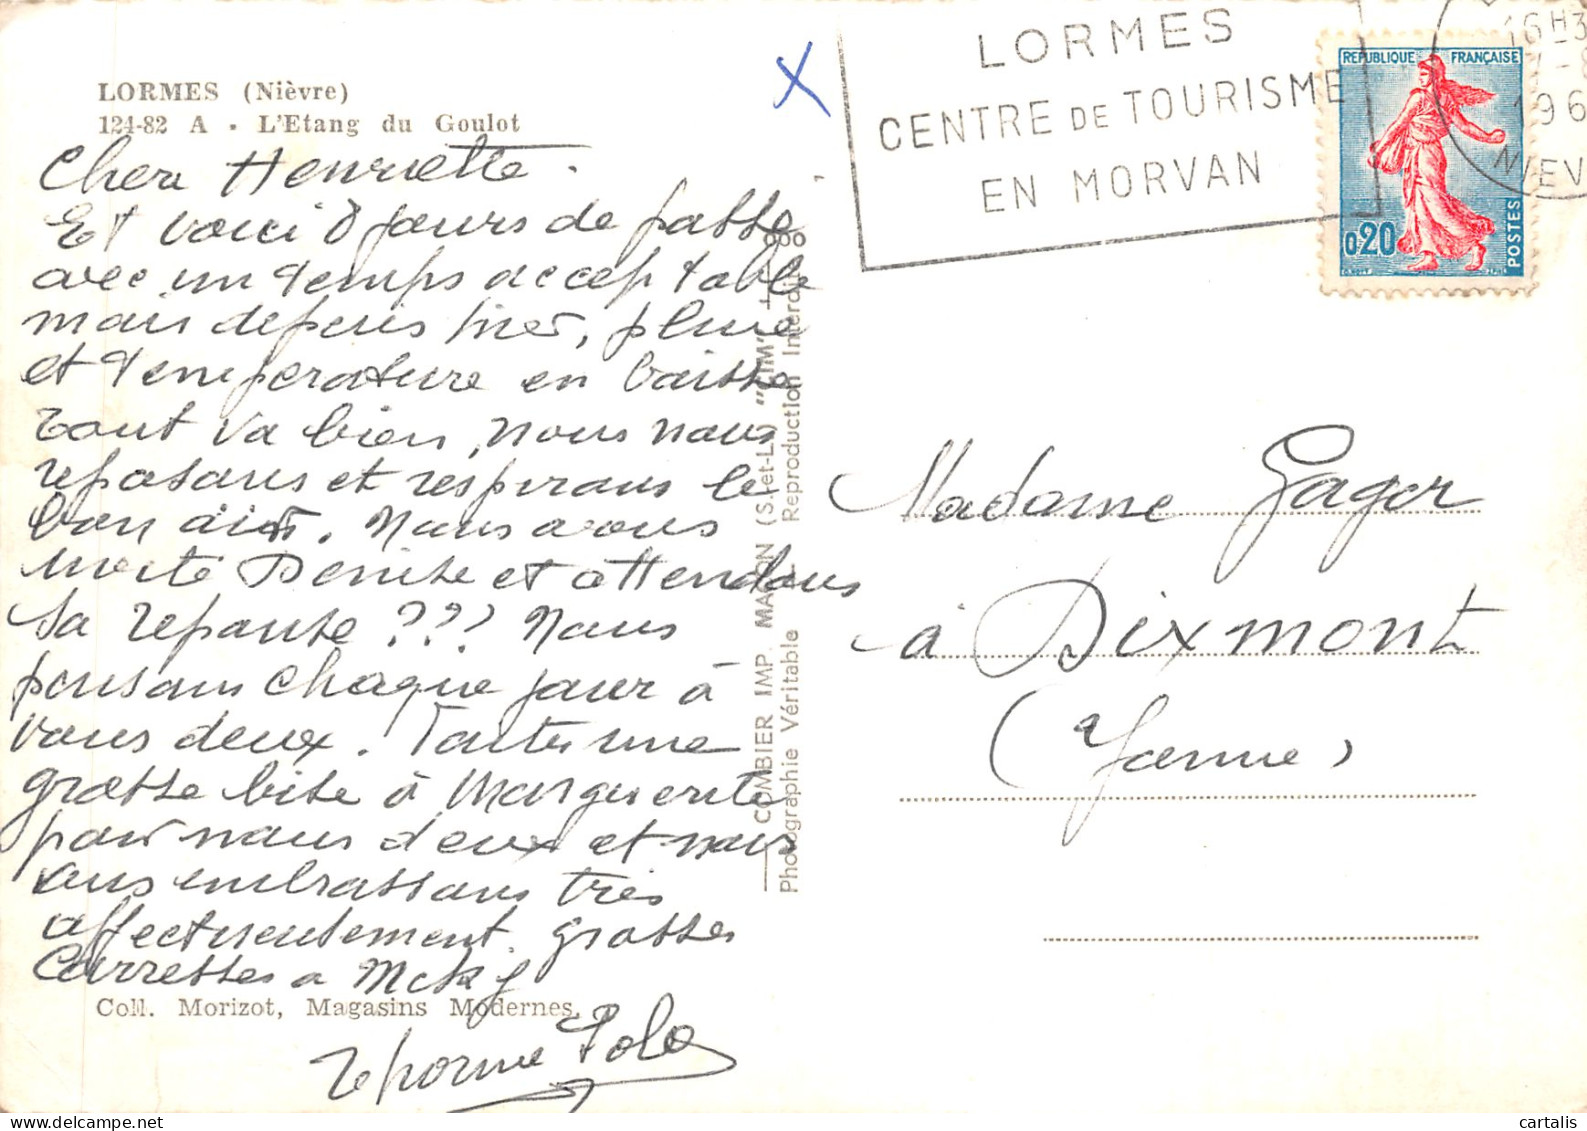 LORMES (Nièvre)
124-82 A - L'Etang du Goulot
Chere Henriette.
Et voici 8 jours de passé
avec un temps acceptable
mais depuis hier, pluie
et température en baisse
tout va bien, nous nous
reposons et respirons le
bon air. Nous avons
invité Denise et attendons
sa reponse ??? Nous
pensons chaque jour à
vous deux. Toutes une
grosse bise à Marguerite
pour nous deux et nous
vous embrassons très
affectueusement. grosses
Carresses a
Coll. Morizot, Magasins Modernes.
COMBIER IMP. MACON (S.-et-L.) "CIM"
Photographie Véritable - Reproduction Interdite
LORMES
CENTRE DE TOURISME
EN MORVAN
16H3
196
NIEV
REPUBLIQUE FRANÇAISE
0,20
POSTES
Madame Gagor
à Dixmont
(Yonne)
cartalis